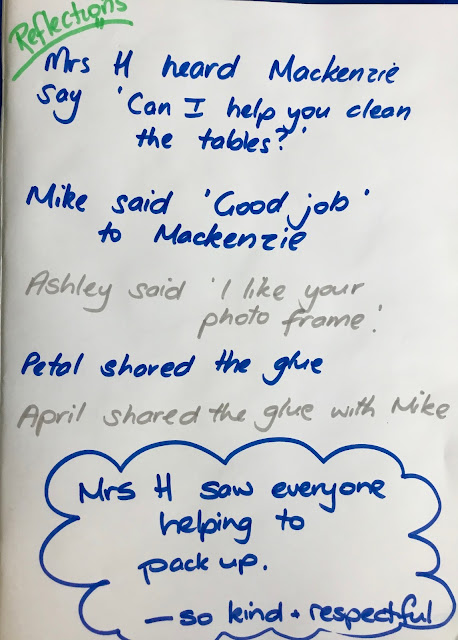 Reflections
Mrs H heard Mackenzie
say 'Can I help you clean
the tables?'
Mike said 'Good job'
to Mackenzie
Ashley said 'I like your
photo frame'.
Petal shared the glue
April shared the glue with Mike
Mrs H saw everyone
helping to
pack up.
— so kind + respectful